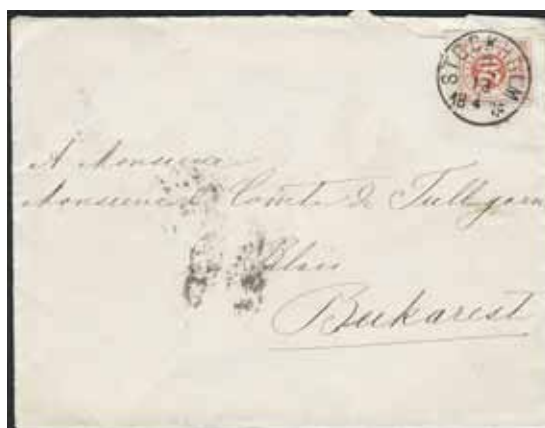 STOCKHOLM
A Monsieur
Monsieur Comte de Tullgarn
Bukarest